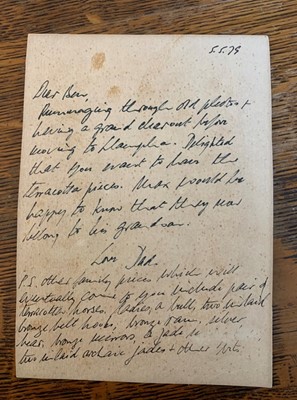 5.5.79
Dear Ben,
Rummaging through old photos +
having a grand clearout before
moving to Llangthu. Delighted
that you want to have the
terracotta pieces. Max would be
happy to know that they now
belong to his grandson.
Love Dad.
P.S. other family pieces which will
eventually come to you include pair of
terracotta horses, ladies, a bull, two inlaid
bronze belt hooks, bronze ram, silver
bear, bronze mirrors, & jade in
this inlaid archaic jades + other bits.